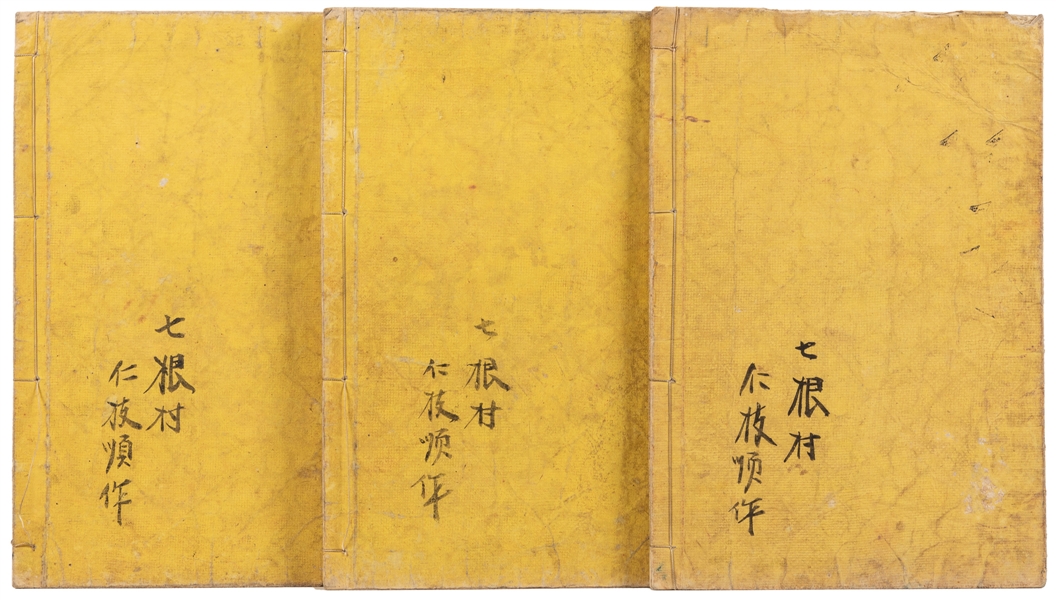 七根村
仁枝順作
七根村
仁枝順作
七根村
仁枝順作